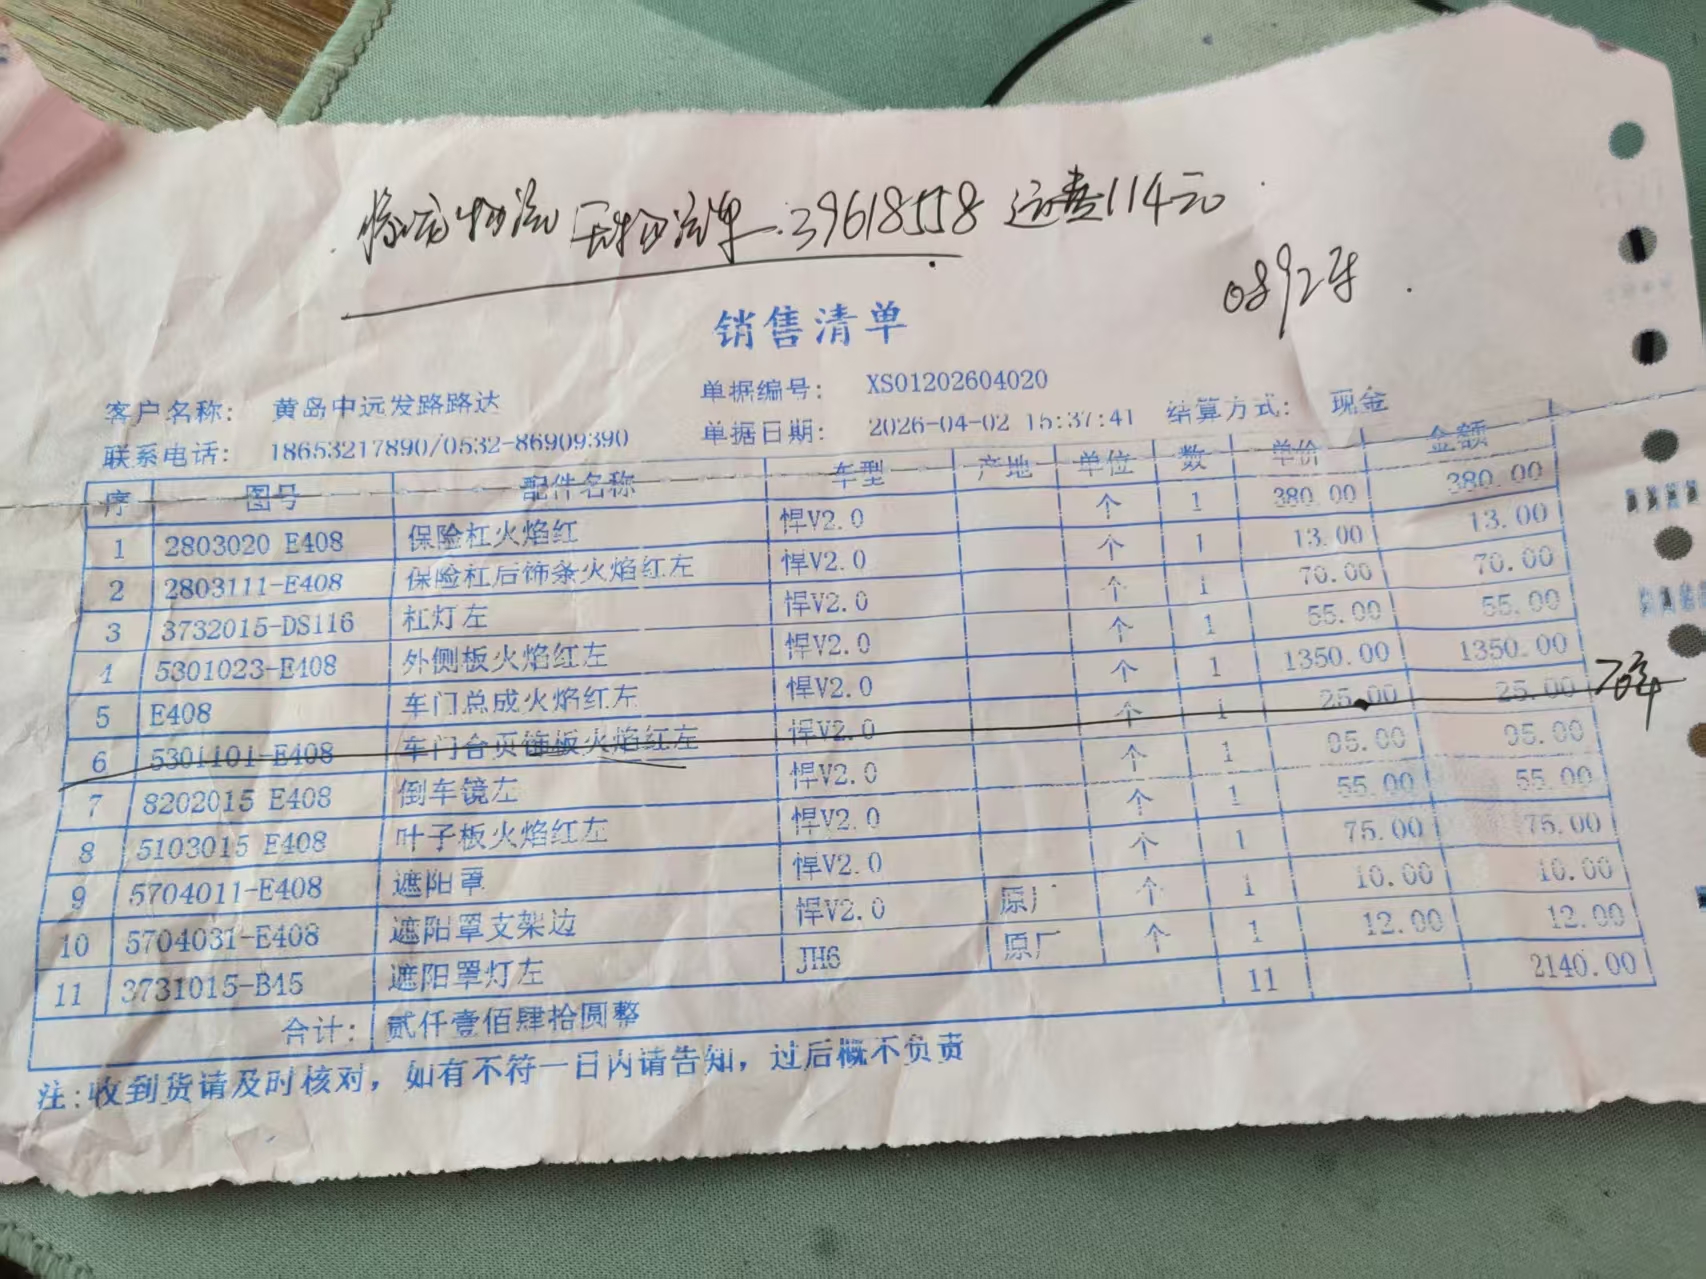 物流 物流单 39618558 运费114元
0892车
销售清单
客户名称: 黄岛中远发路路达 单据编号: XS01202604020
联系电话: 18653217890/0532-86909390 单据日期: 2026-04-02 15:37:41 结算方式: 现金
序 图号 配件名称 车型 产地 单位 数 单价 金额
1 2803020 E408 保险杠火焰红 悍V2.0 个 1 380.00 380.00
2 2803111-E408 保险杠后饰条火焰红左 悍V2.0 个 1 13.00 13.00
3 3732015-DS116 杠灯左 悍V2.0 个 1 70.00 70.00
4 5301023-E408 外侧板火焰红左 悍V2.0 个 1 55.00 55.00
5 E408 车门总成火焰红左 悍V2.0 个 1 1350.00 1350.00
6 5301101-E408 车门合页饰板火焰红左 悍V2.0 个 1 25.00 25.00
7 8202015 E408 倒车镜左 悍V2.0 个 1 95.00 95.00
8 5103015 E408 叶子板火焰红左 悍V2.0 个 1 55.00 55.00
9 5704011-E408 遮阳罩 悍V2.0 个 1 75.00 75.00
10 5704031-E408 遮阳罩支架边 悍V2.0 原厂 个 1 10.00 10.00
11 3731015-B45 遮阳罩灯左 JH6 原厂 个 1 12.00 12.00
合计: 贰仟壹佰肆拾圆整 11 2140.00
注:收到货请及时核对，如有不符一日内请告知，过后概不负责